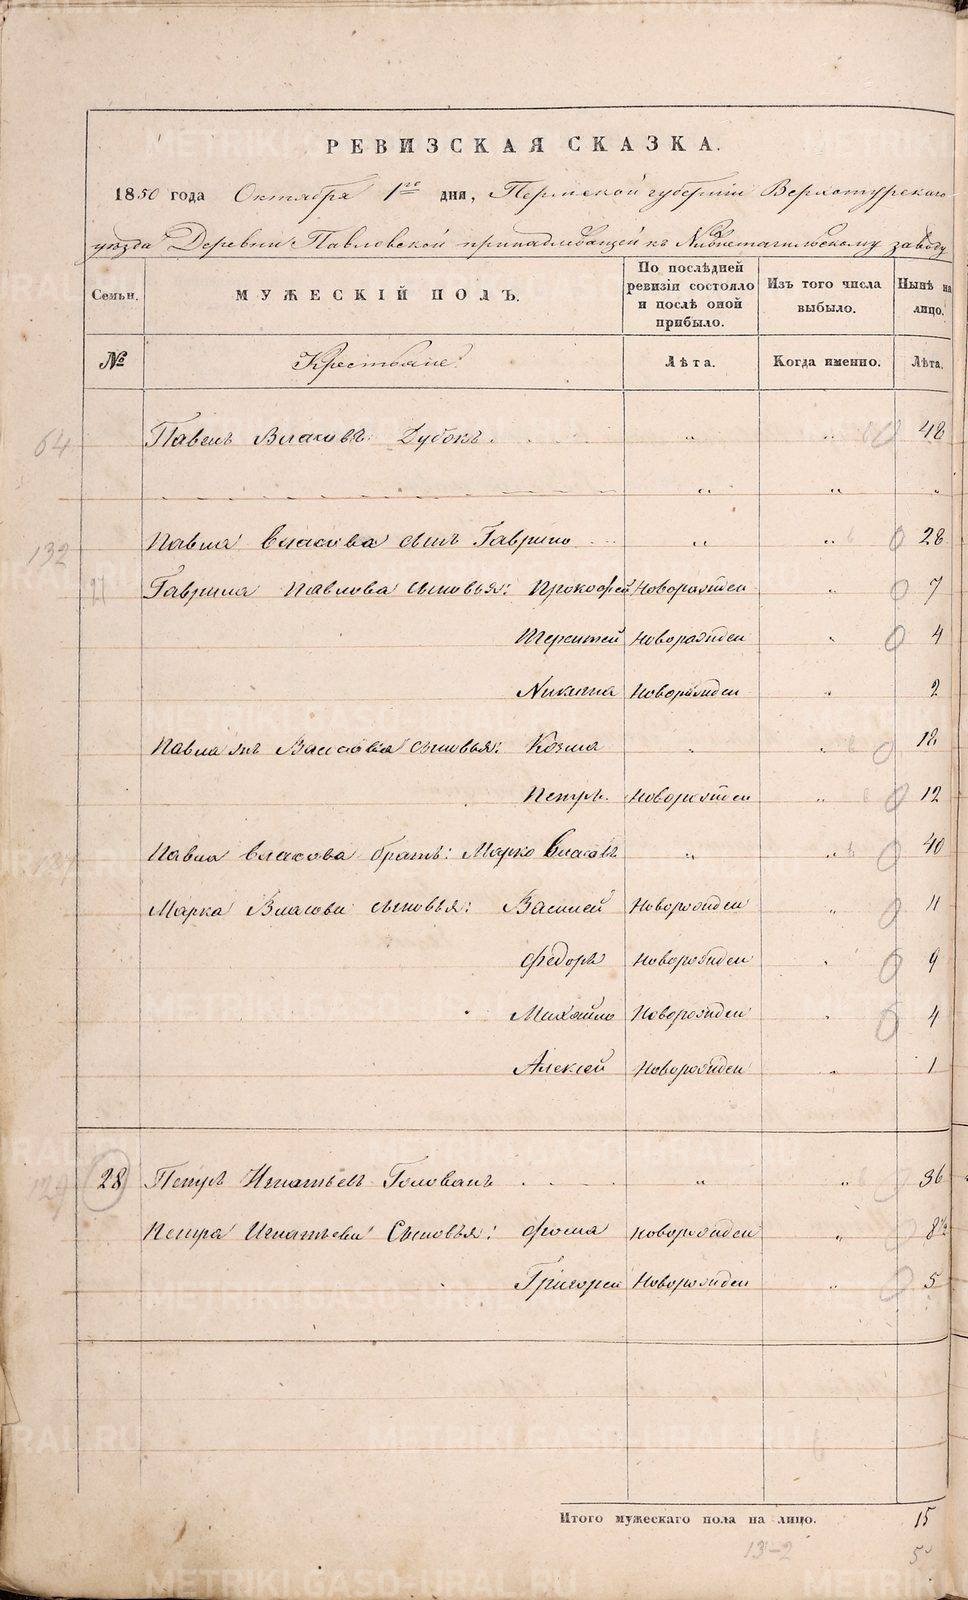 РЕВИЗСКАЯ СКАЗКА.
1850 года Октября 1го дня, Пермской губернии Верхотурскаго
уезда Деревни Павловской принадлежащей к Нижнетагильскому заводу
Семьи. МУЖЕСКІЙ ПОЛЪ. По послѣдней ревизіи состояло и послѣ оной прибыло. Изъ того числа выбыло. Нынѣ на лицо.
№ Крестьяне. Лѣта. Когда именно. Лѣта.
64 Павелъ Власовъ Дубокъ. „ „ 48
„ „ „
132 Павла Власова сынъ Гаврило „ „ 28
Гаврила Павлова сыновья: Прокофей Новорожден „ 7
Терентей Новорожден „ 4
Никита Новорожден „ 2
Павла жъ Власова сыновья: Козма „ „ 18
Петръ. Новорожден „ 12
Павла Власова братъ: Марко Власовъ „ „ 40
Марка Власова сыновья: Василей Новорожден „ 11
Федоръ Новорожден „ 9
Михайло Новорожден „ 4
Алексей Новорожден „ 1
28 Петръ Игнатьевъ Голованъ „ „ 36
Петра Игнатьева Сыновья: Фома Новорожден „ 8½
Григорей Новорожден „ 5
Итого мужескаго пола на лицо. 15
13-2
METRIKI.GASO-URAL.RU